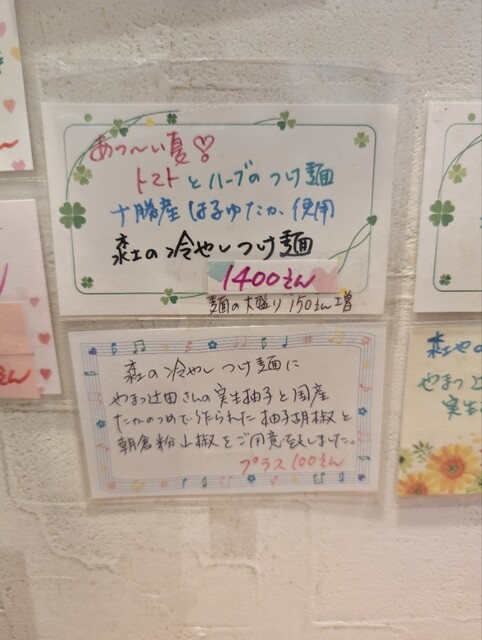 あつ〜い夏♡
トマトとハーブのつけ麺
十勝産 はるゆたか使用
の冷やしつけ麺
1400えん
麺の大盛り 150えん増
の冷やしつけ麺に
やまつ辻田さんの実生柚子と国産
たかのつめで作られた柚子胡椒と
朝倉粉山椒をご用意致しました。
プラス100えん
やまつ
実生
えん